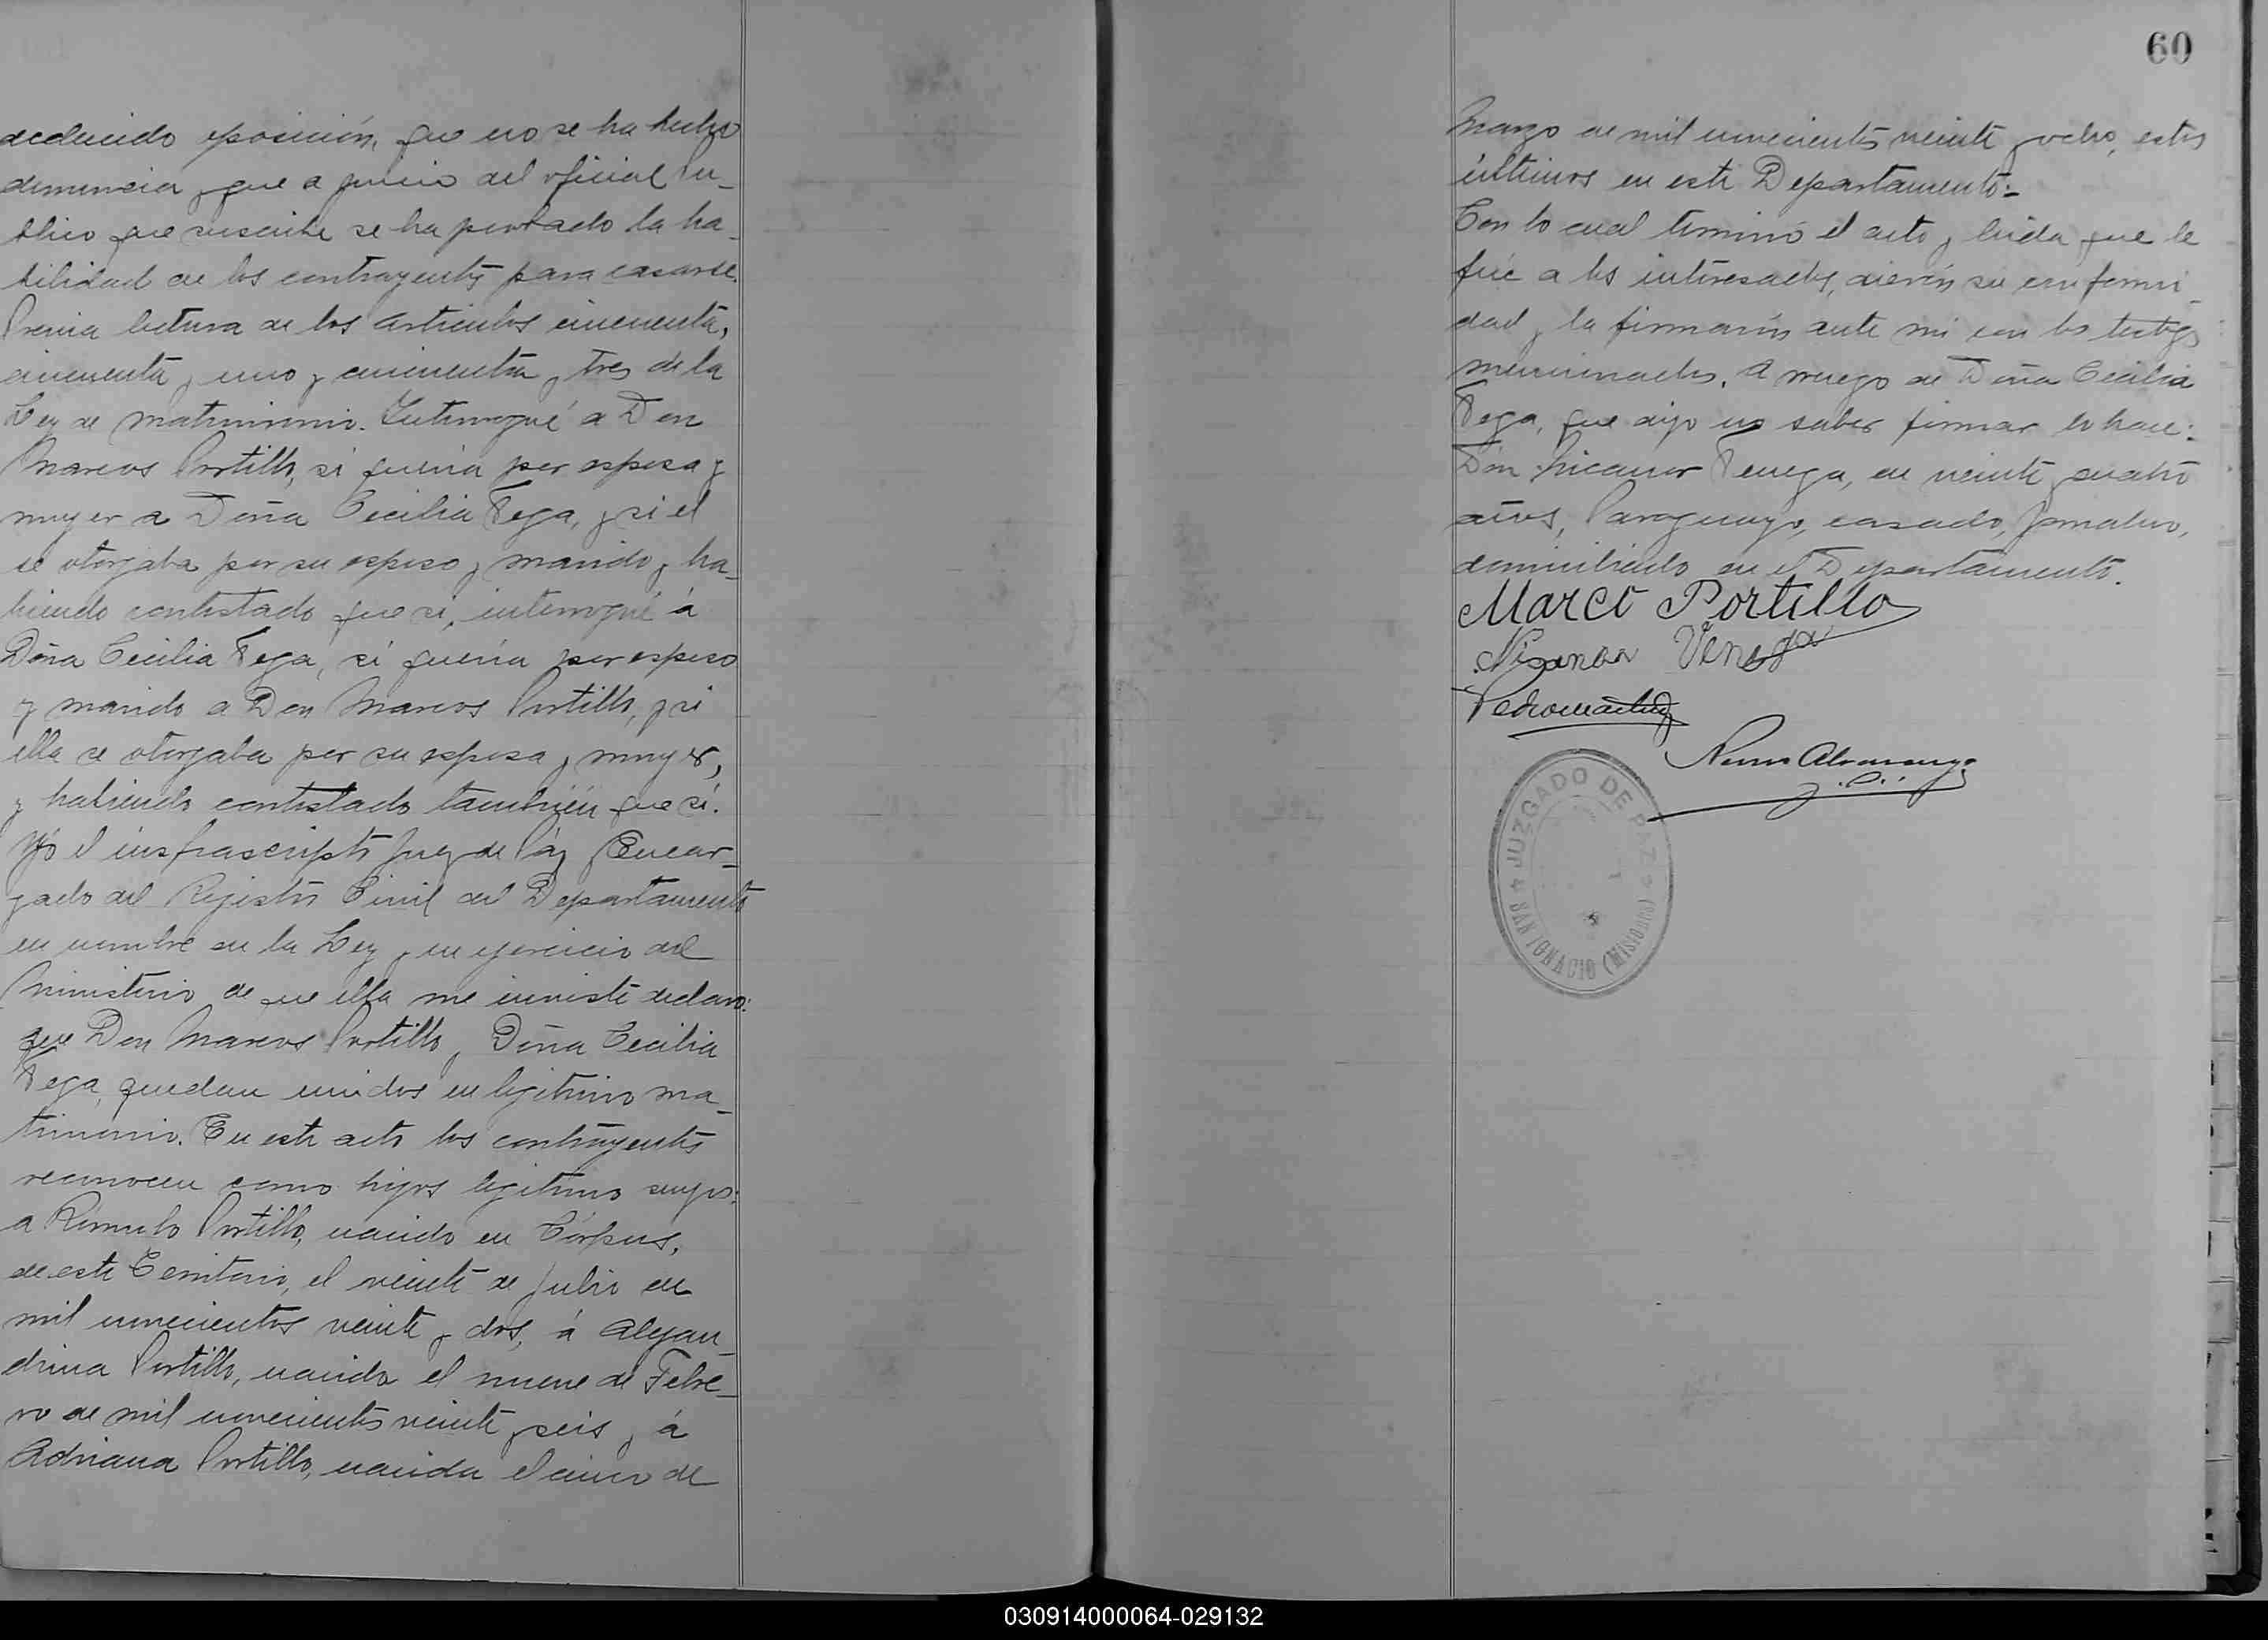 deducido oposición, que no se ha hecho
denuncia y que a juicio del oficial Pú-
blico que suscribe se ha probado la ha-
bilidad de los contrayentes para casarse.
Previa lectura de los artículos cincuenta,
cincuenta y uno y cincuenta y tres de la
Ley de matrimonio. Interrogué a Don
Marcos Portillo, si quería por esposa y
mujer a Doña Cecilia Vega, y si el
se otorgaba por su esposo y marido y ha-
biendo contestado que si, interrogué á
Doña Cecilia Vega, si quería por esposo
y marido a Don Marcos Portillo, y si
ella se otorgaba por su esposa y mujer,
y habiendo contestado también que sí.
Yó el infrascripto Juez de Páz y Encar-
gado del Registro Civil del Departamento
en nombre de la Ley y en ejercicio del
Ministerio de que ella me inviste declaro:
que Don Marcos Portillo y Doña Cecilia
Vega, quedan unidos en legitimo ma-
trimonio. En este acto los contrayentes
reconocen como hijos legitimo suyos:
a Rómulo Portillo, nacido en Córpus,
de este Territorio, el veinte de Julio de
mil novecientos veinte y dos, á Alejan-
drina Portillo, nacida el nueve de Febre-
ro de mil novecientos veinte y seis y á
Adriana Portillo, nacida el cinco de
60
Marzo de mil novecientos veinte y ocho, estos
últimos en este Departamento.=
Con lo cual terminó el acto y leída que le
fué a los interesados, dieron su conformi-
dad y la firmaron ante mi con los testigos
mencionados. A ruego de Doña Cecilia
Vega, que dijo no saber firmar lo hace:
Don Nicanor Venega, de veinte y cuatro
años, Paraguayo, casado, jornalero,
domiciliado en el Departamento.
Marco Portillo
Nicanor Venega
Pedro
J. P.
JUZGADO DE PAZ
SAN IGNACIO (MISIONES)
030914000064-029132